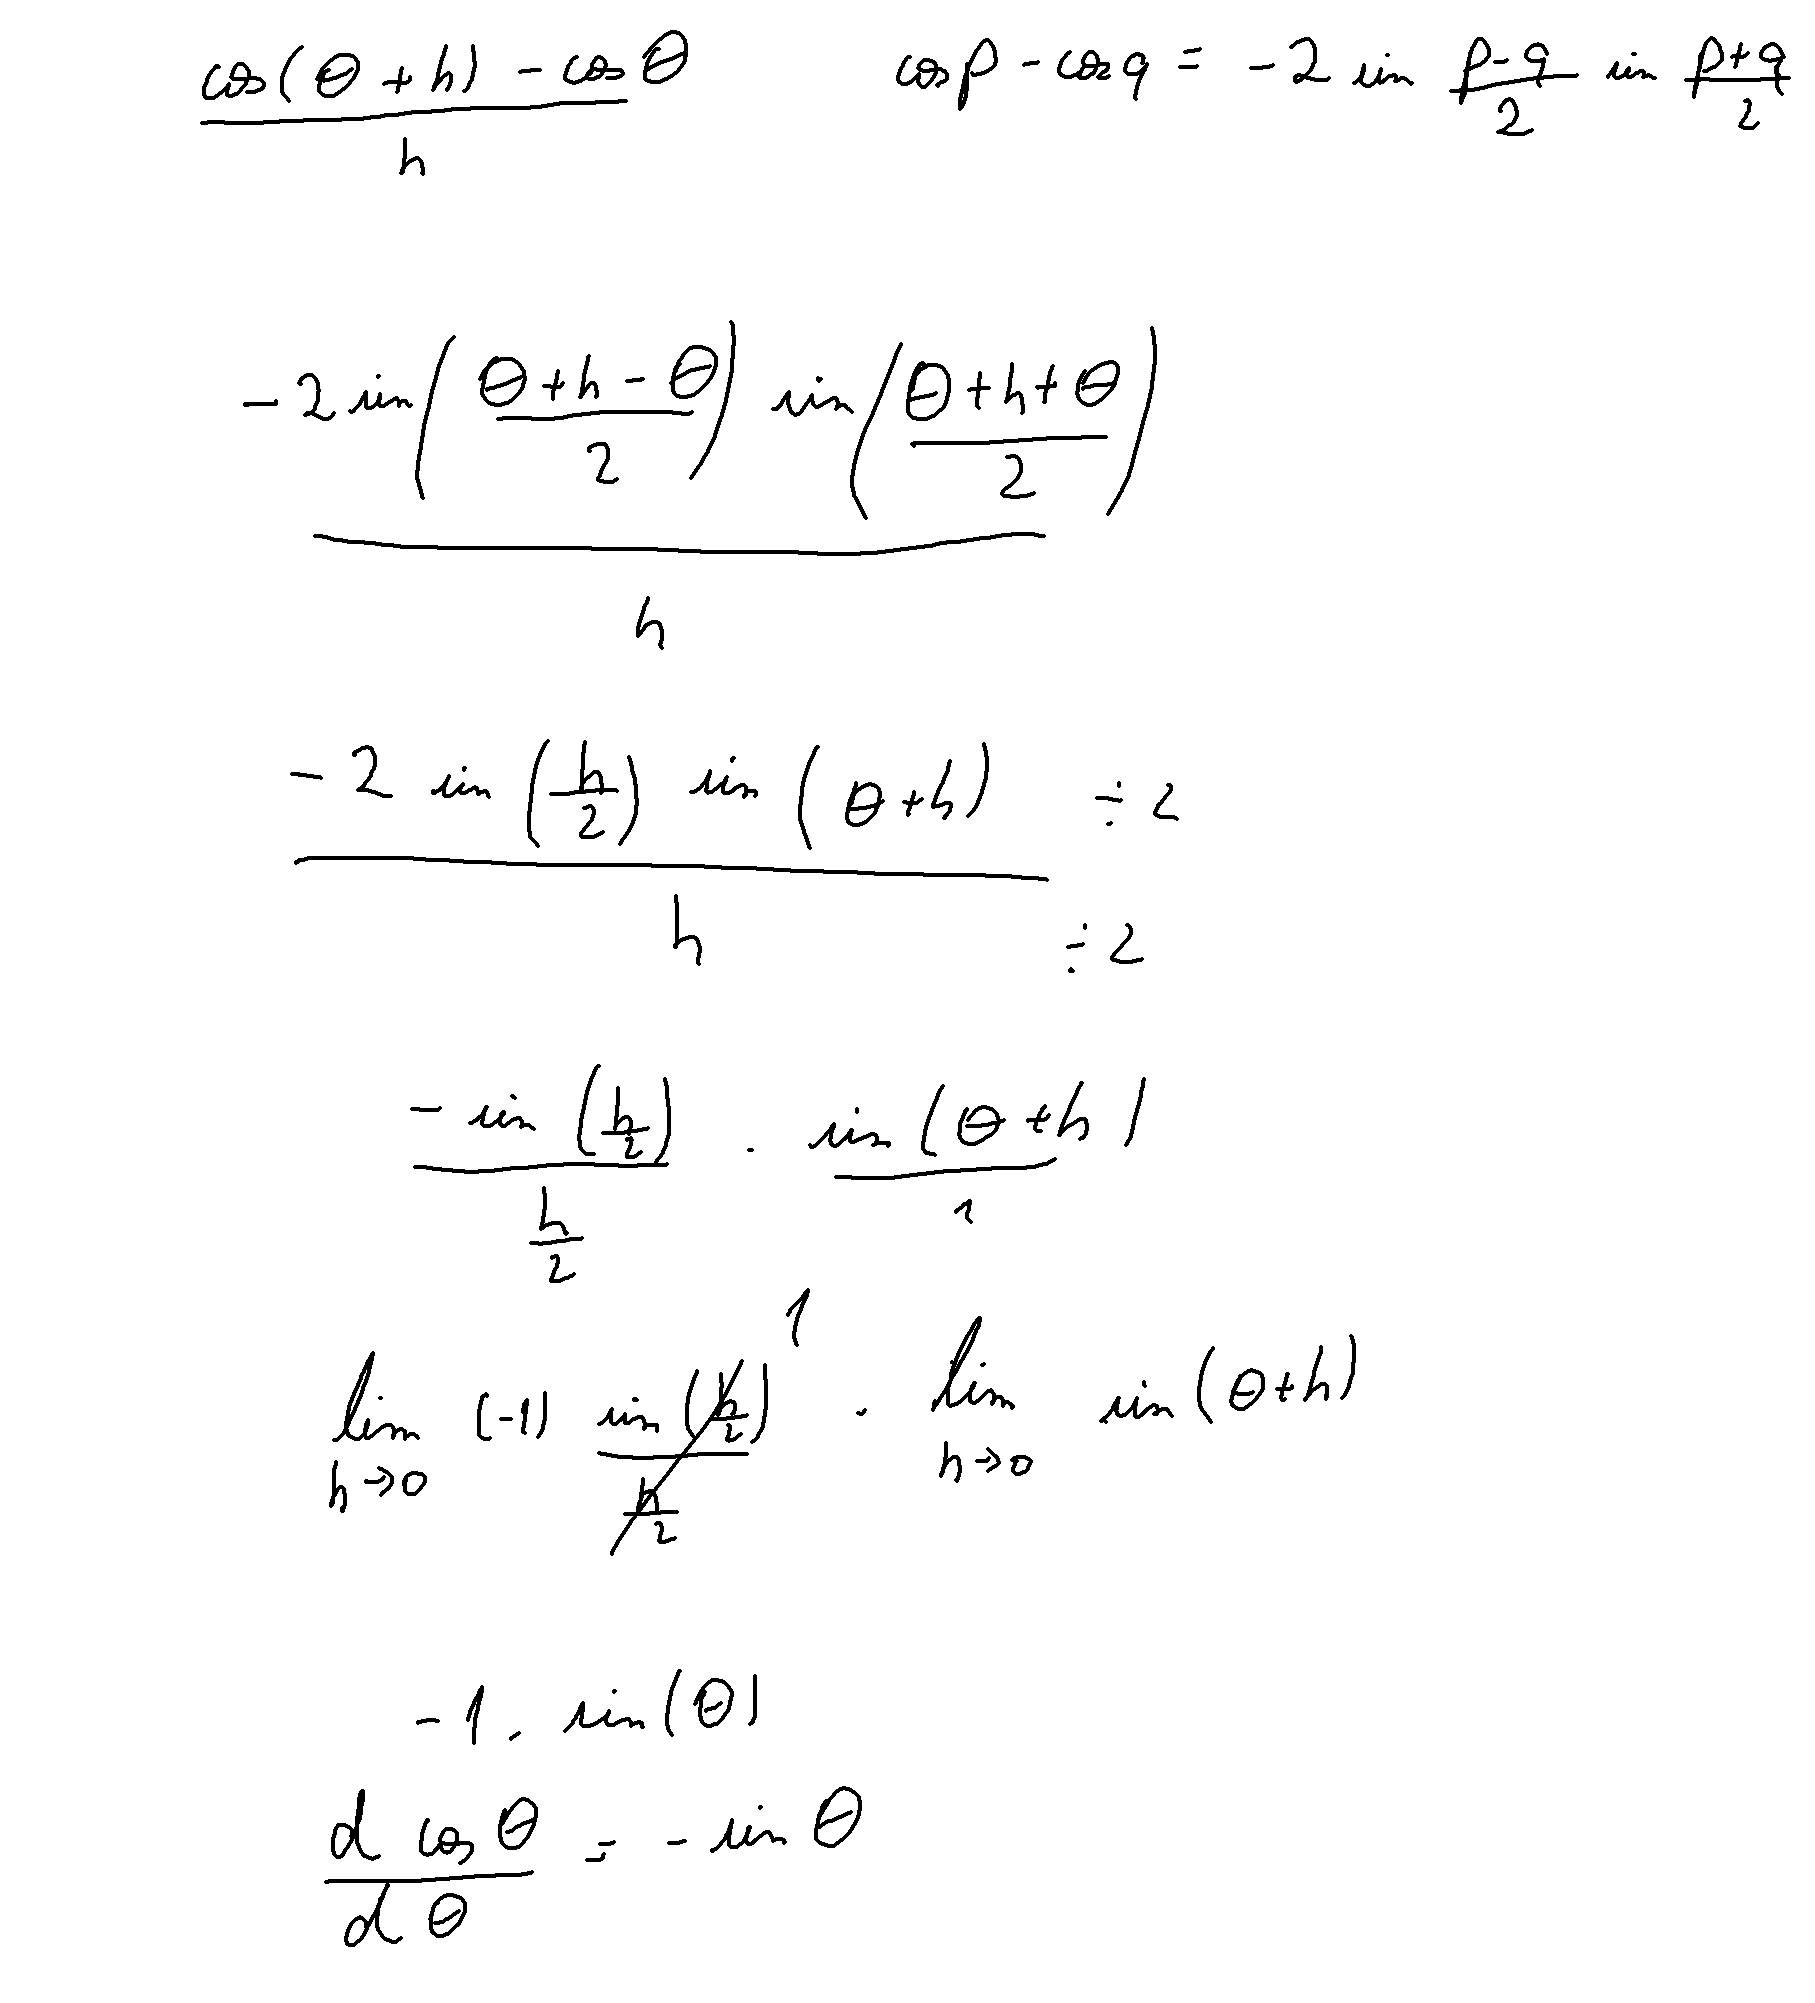 cos(θ+h) - cosθ / h    cos p - cos q = -2 sin (p-q)/2 sin (p+q)/2
-2 sin((θ+h-θ)/2) sin((θ+h+θ)/2) / h
-2 sin(h/2) sin(θ+h) ÷2 / h ÷2
-sin(h/2) / (h/2) · sin(θ+h) / 1
lim h→0 (-1) sin(h/2) / (h/2) 1 · lim h→0 sin(θ+h)
-1 . sin(θ)
d cos θ / d θ = - sin θ